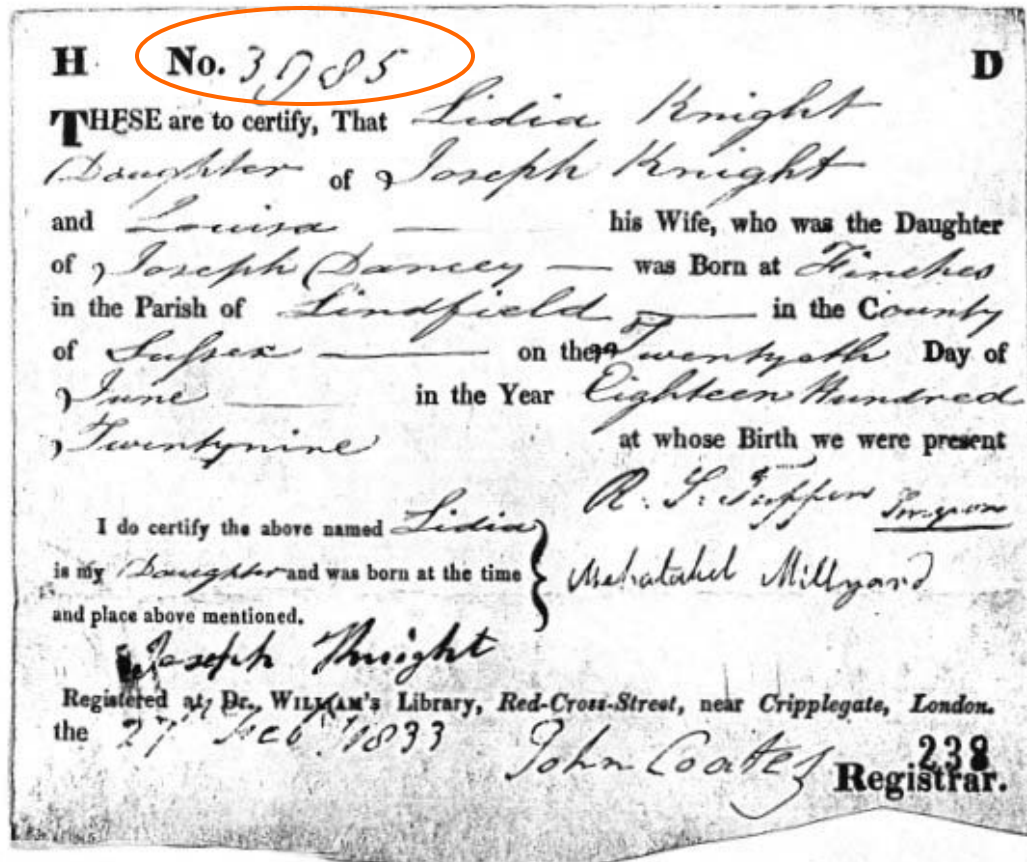 H No. 3985 D
THESE are to certify, That Lidia Knight
Daughter of Joseph Knight
and Louisa — his Wife, who was the Daughter
of Joseph Dancey — was Born at Finches
in the Parish of Lindfield — in the County
of Sussex — on the Twentyeth Day of
June — in the Year Eighteen Hundred
Twentynine at whose Birth we were present
R. S. Tuppen Surgeon
I do certify the above named Lidia
is my Daughter and was born at the time
and place above mentioned.
Mehatabel Millyard
Joseph Knight
Registered at Dr. WILLIAM'S Library, Red-Cross-Street, near Cripplegate, London.
the 27 Feb 1833
John Coates Registrar.
238